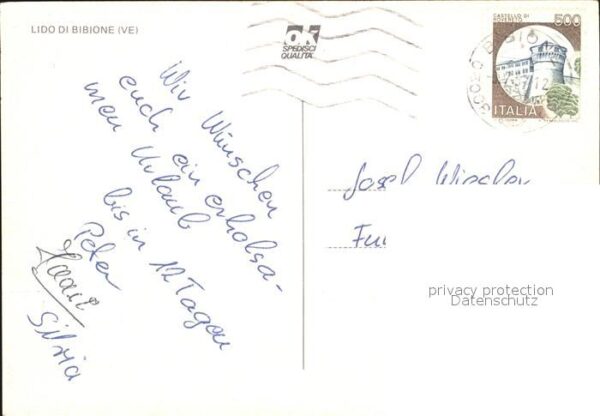 LIDO DI BIBIONE (VE)
ok
SPEDISCI
QUALITA'
CASTELLO DI
ROVERETO
500
ITALIA
Wir Wünschen
euch ein erholsa-
men Urlaub
bis in 12 Tagen
Peter
Silvia
Josef
privacy protection
Datenschutz